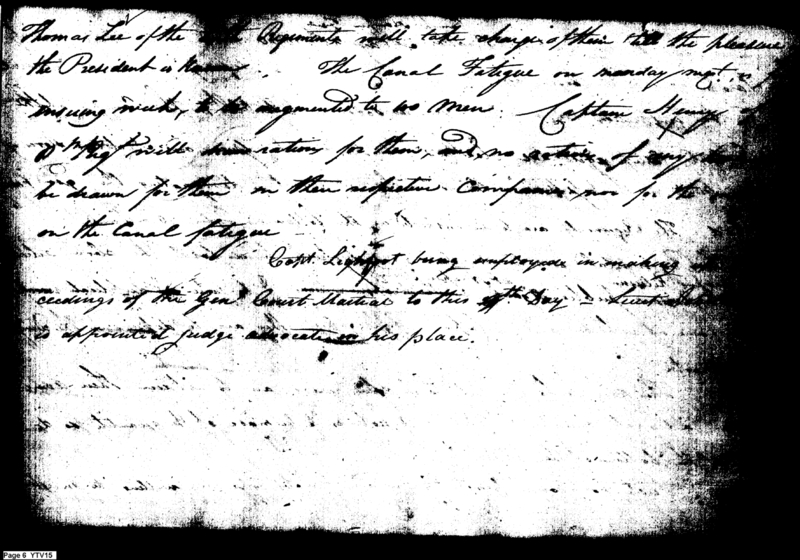 Thomas Lee of the Regiments will take charge of their till the pleasure
the President is Known. The Canal Fatigue on monday next is
ensuing week, to be augmented to 100 Men. Captain Henry
Regt will draw rations for them, and no rations of any
be drawn for them on their respective Companies nor for the
on the Canal fatigue
Capt Lightfoot being employed in making
ceedings of the Genl Court Martial to this Day — Lieut
is appointed judge advocate in his place.
Page 6 YTV15